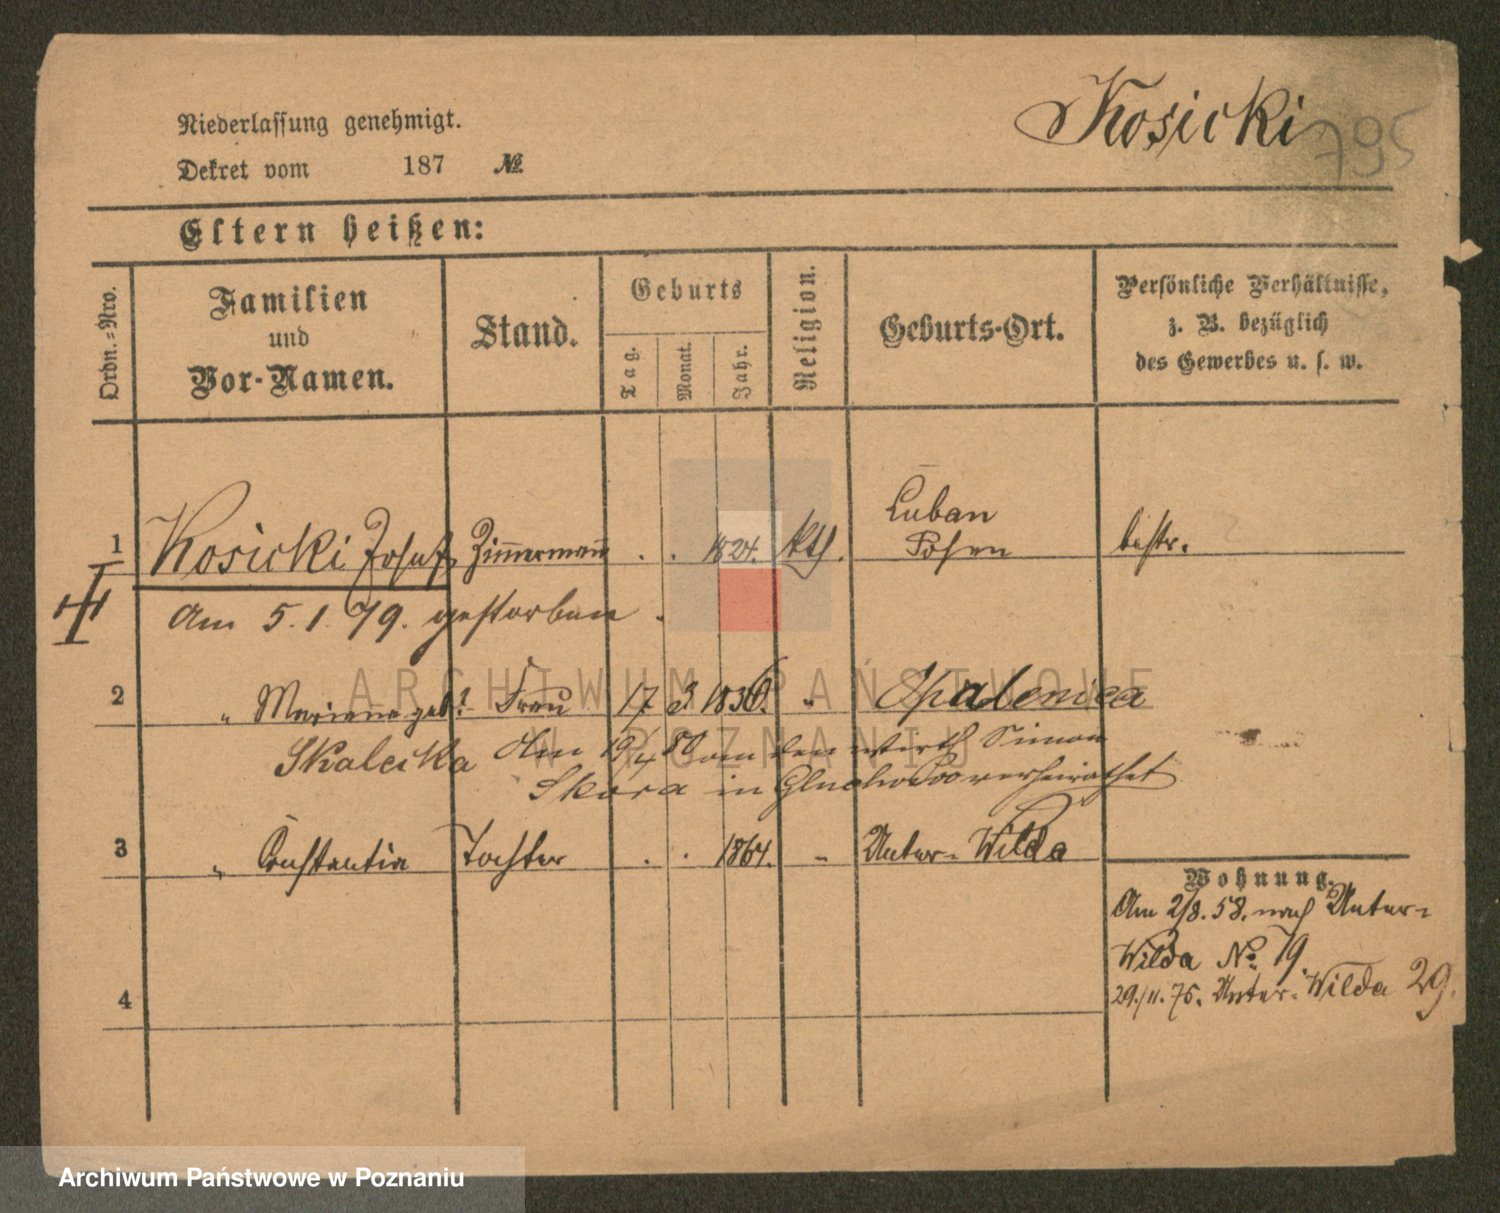 Kosicki 795
Niederlassung genehmigt.
Dekret vom 187 №
Eltern heißen:
Ordn.=Nro.
Familien
und
Vor-Namen.
Stand.
Geburts
Tag.
Monat.
Jahr.
Religion.
Geburts-Ort.
Persönliche Verhältnisse,
z. B. bezüglich
des Gewerbes u. s. w.
Luban
1 Kosicki Josef Zimmermann . . 1824. kth. Posen bestr.
Am 5.1.79. gestorben.
2 " Mariana geb: Frau 17 3 1836. " Opalenica
Skalecka Am 19/4 80 an den Wirth Simon
Skora in verheirathet
3 " Constantia Tochter . . 1864. " Unter-Wilda
Wohnung.
Am 2/8. 58. nach Unter-
Wilda No. 19
29./11. 75. Unter-Wilda 29.
4
ARCHIWUM PAŃSTWOWE
W POZNANIU
Archiwum Państwowe w Poznaniu